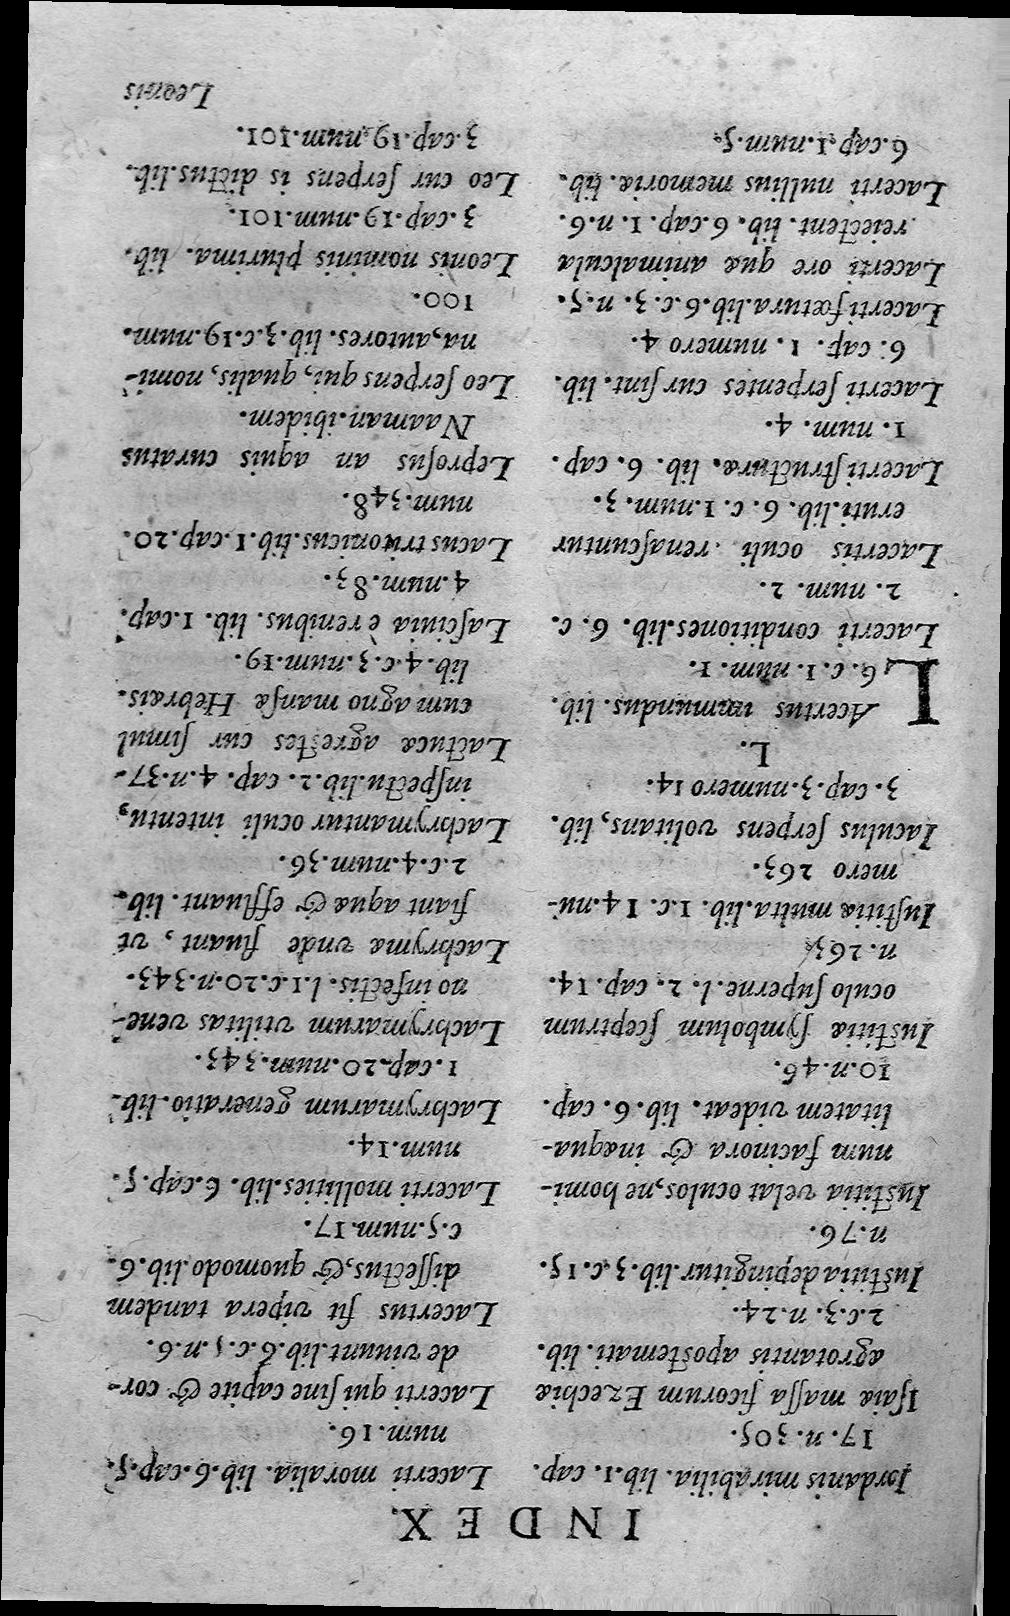 INDEX.
Iordanis mirabilia. lib. 1. cap.
17. n. 305.
Isaiæ massa ficorum Ezechiæ
ægrotantis apostemati. lib.
2. c. 3. n. 24.
Iustitia depingitur. lib. 3. c. 15.
n. 76.
Iustitia velat oculos, ne homi-
num facinora & inæqua-
litatem videat. lib. 6. cap.
10. n. 46.
Iustitiæ symbolum sceptrum
oculo superne. l. 2. cap. 14.
n. 263
Iustitiæ mulcta. lib. 1. c. 14. nu-
mero 263.
Iaculus serpens volitans, lib.
3. cap. 3. numero 14.
L.
LAcertus immundus. lib.
6. c. 1. num. 1.
Lacerti conditiones. lib. 6. c.
2. num. 2.
Lacertis oculi renascuntur
eruti. lib. 6. c. 1. num. 3.
Lacerti structura. lib. 6. cap.
1. num. 4.
Lacerti serpentes cur sint. lib.
6. cap. 1. numero 4.
Lacerti fœtura. lib. 6. c. 3. n. 5.
Lacerti ore quæ animalcula
reiectent. lib. 6. cap. 1. n. 6.
Lacerti nullius memoriæ. lib.
6. cap. 1. num. 5.
Lacerti moralia. lib. 6. cap. 5.
num. 16.
Lacerti qui sine capite & cor-
de viuunt. lib. 6. c. 5. n. 6.
Lacertus fit vipera tandem
dissectus, & quomodo. lib. 6.
c. 5. num. 17.
Lacerti mollities. lib. 6. cap. 5.
num. 14.
Lachrymarum generatio. lib.
1. cap. 20. num. 343.
Lachrymarum vtilitas vene-
no infectis. l. 1. c. 20. n. 343.
Lachrymæ vnde fluant, vt
fiant aquæ & effluant. lib.
2. c. 4. num. 36.
Lachrymantur oculi intentu,
inspectu. lib. 2. cap. 4. n. 37.
Lactucæ agrestes cur simul
cum agno mansæ Hebræis.
lib. 4. c. 3. num. 19.
Lasciuia è renibus. lib. 1. cap.
4. num. 83.
Lacus tritonicus. lib. 1. cap. 20.
num. 348.
Leprosus an aquis curatus
Naaman. ibidem.
Leo serpens qui, qualis, nomi-
na, autores. lib. 3. c. 19. num.
100.
Leonis nominis plurima. lib.
3. cap. 19. num. 101.
Leo cur serpens is dictus. lib.
3. cap. 19. num. 101.
Leonis